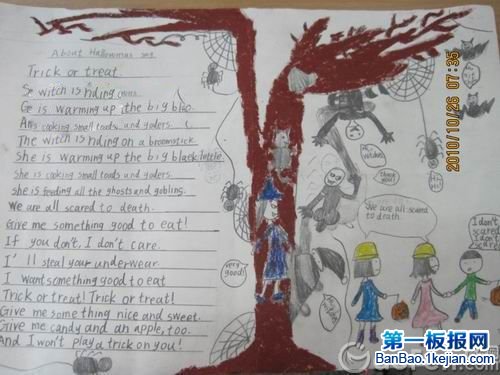 About Hallowmas
Trick or treat
Se witch is riding
Ge is warming up the big
cooking small toads and yaders.
The witch is riding on a broomstick.
She is warming up the big black
She is cooking small toads and yaders.
she is feeding all the ghosts and gobling.
We are all scared to death.
Give me something good to eat!
If you don't, I don't care.
I'll steal your underwear
I want something good to eat
Trick or treat! Trick or treat!
Give me something nice and sweet.
Give me candy and an apple, too.
And I won't play a trick on you!
Very good!
thank you!
We are all scared to death.
I don't scared I don't scare!
2010/10/26 07:35
第一板报网
BanBao.1kejian.com